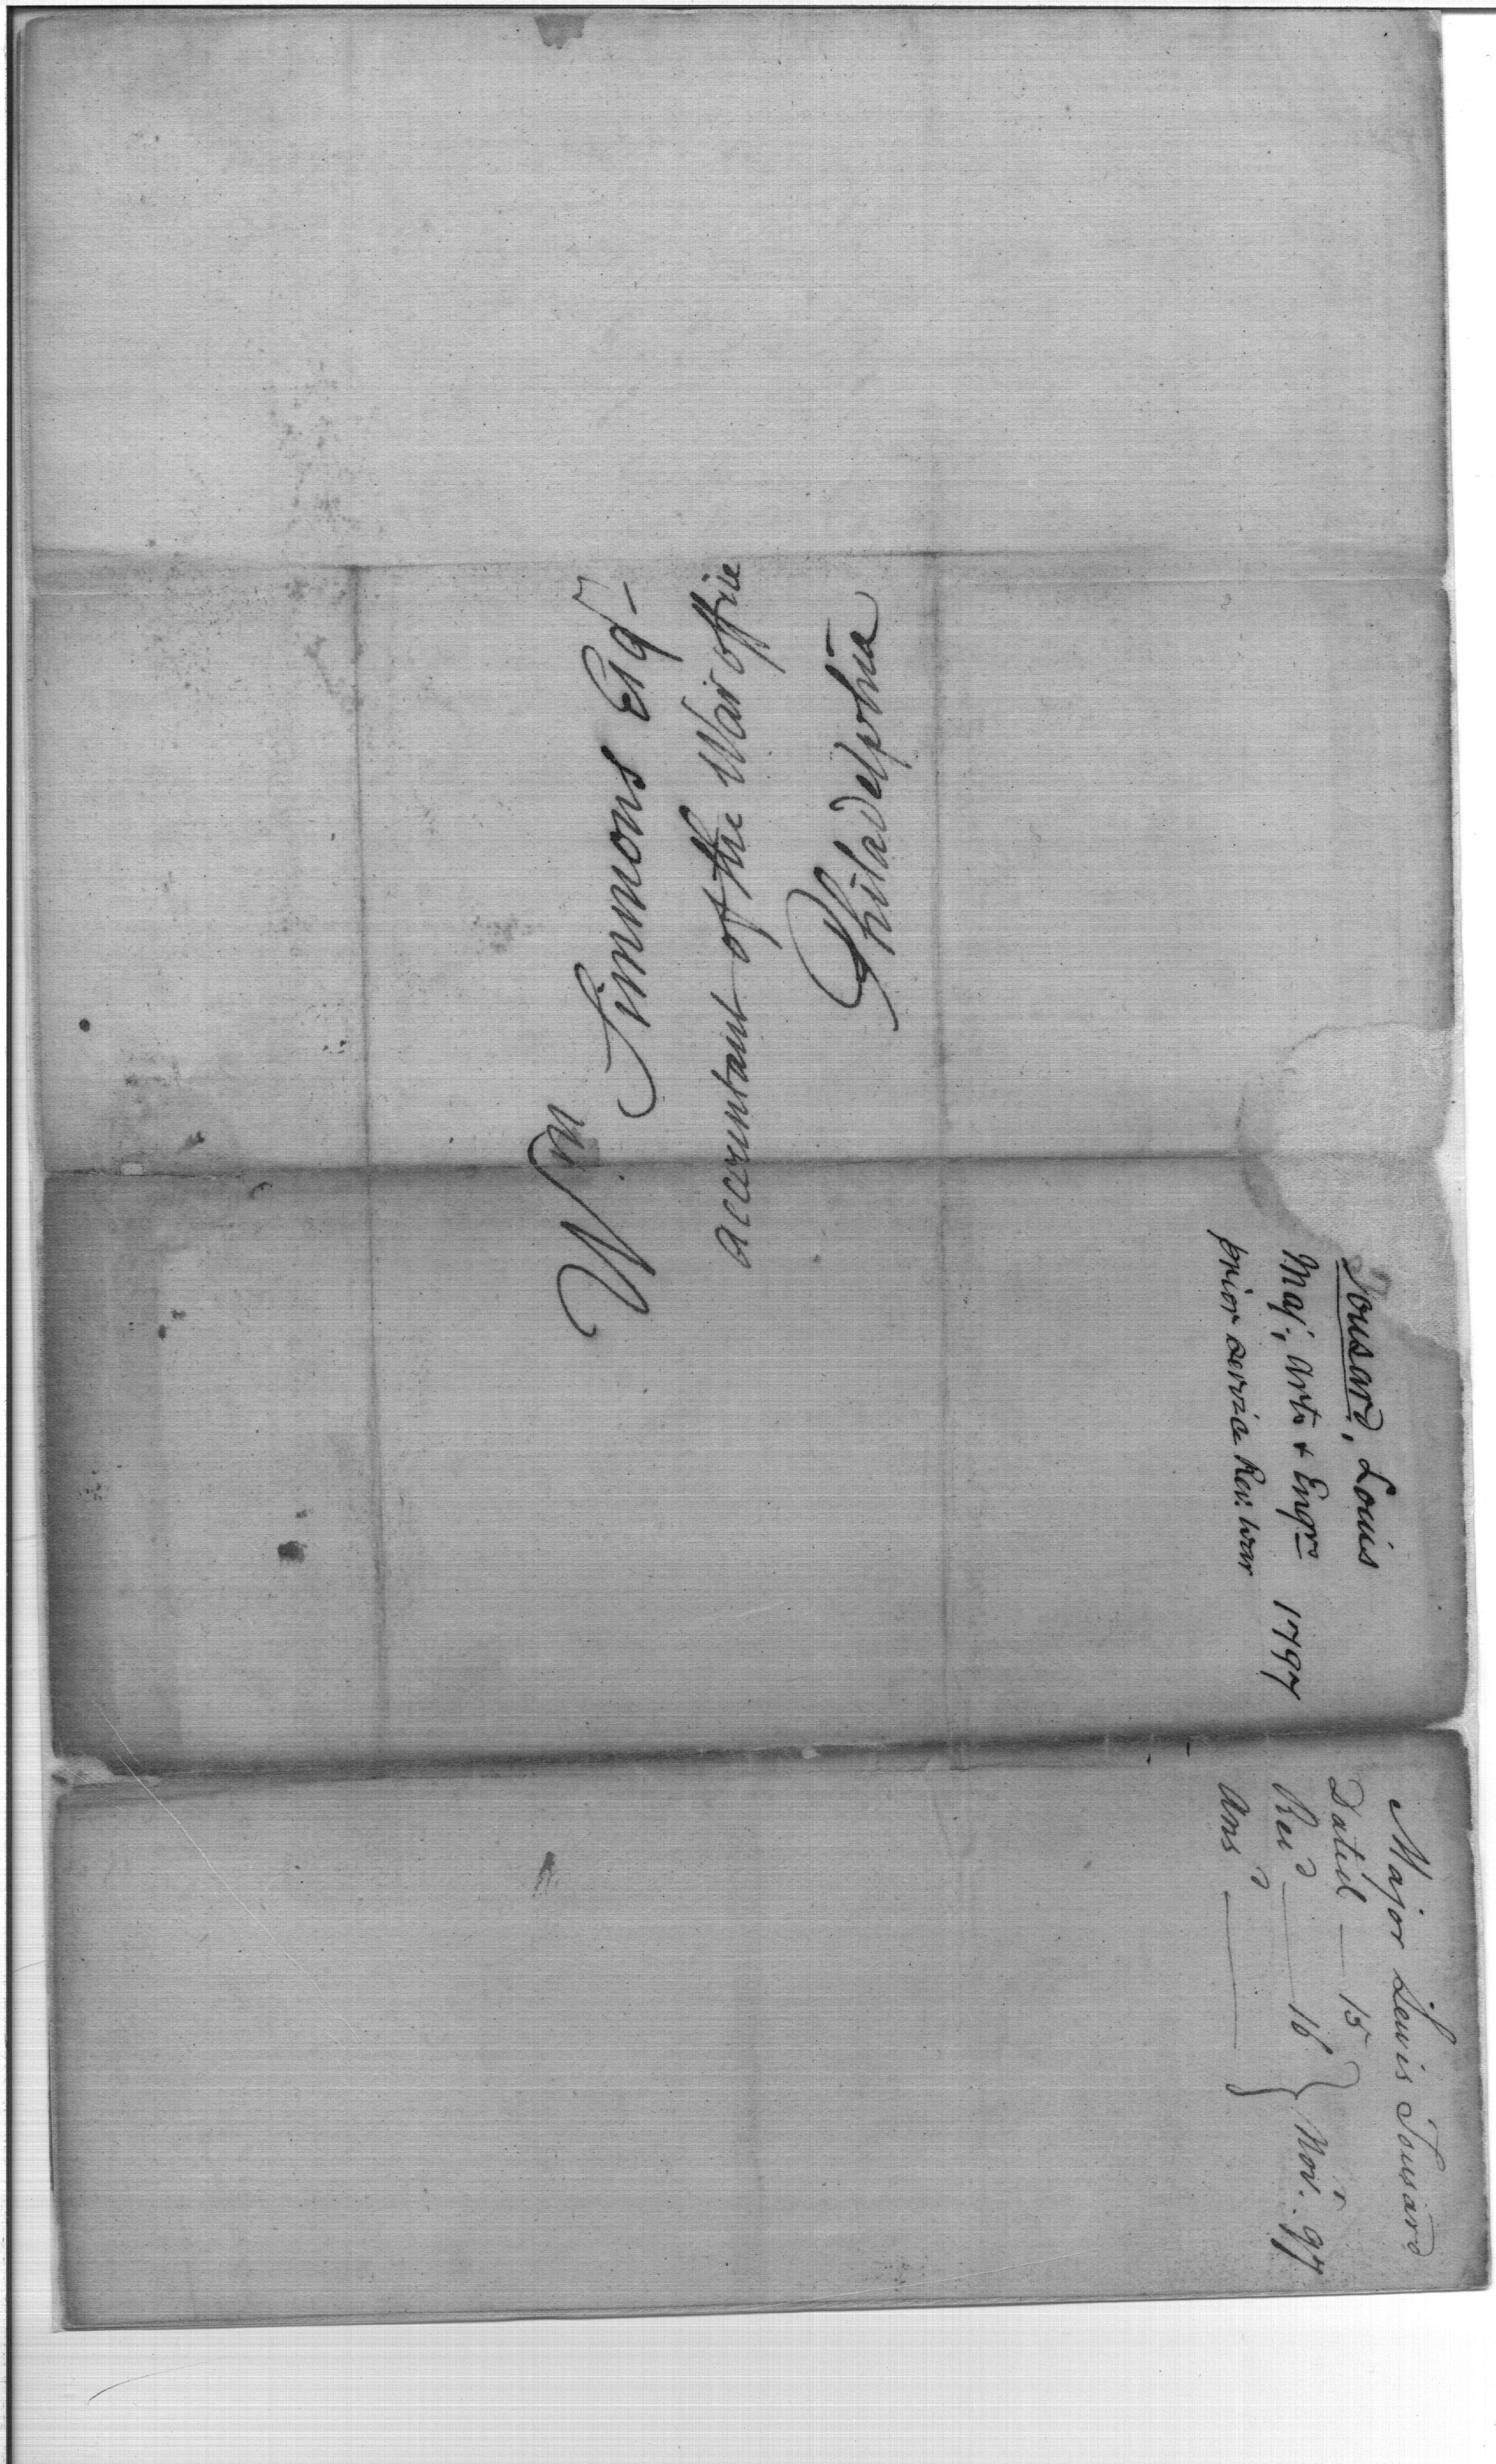 Wm Simmons Esqr
accountant of the War office
Philadelphia
Tousard, Louis
Maj; Arts + Engrs 1797
prior service Rev. war
Major Lewis Tousard
Dated — 15
Recd — 16 } Novr. 97
Ansd —